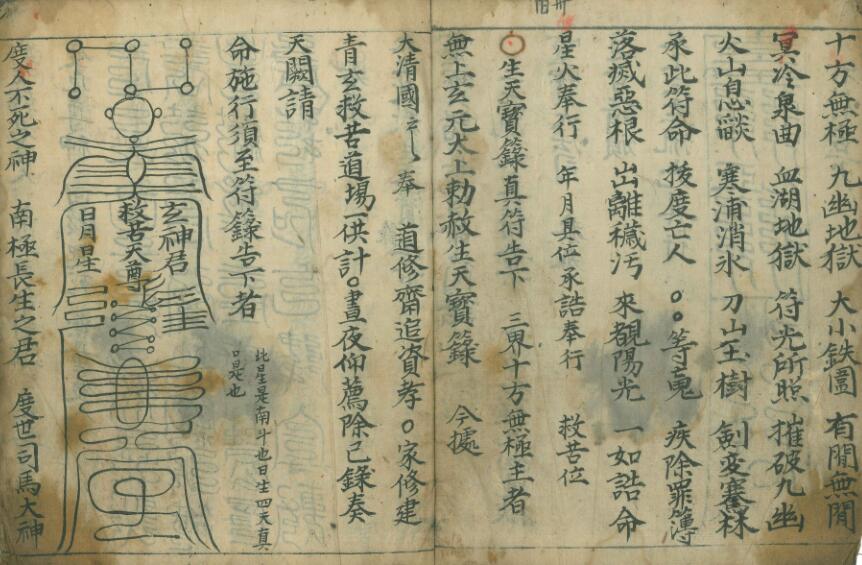 十方無極 九幽地獄 大小鉄圍 有間無間
冥冷泉曲 血湖地獄 符光所照 摧破九幽
火山息𦦨 寒浦消氷 刀山玉樹 劍变騫林
承此符命 㧞度亡人 〇〇等䰟 疾除罪簿
落㓕惡根 出離穢污 來覩陽光 一如誥命
星火奉行 年月具位承誥奉行 救苦位
生天寶籙真符告下 三界十方無極主者
無上玄元太上勅赦生天寶籙 今據
大清國 奉 道修齋追資孝〇家修建
青玄救苦道場一供計〇晝夜仰薦除已錄奏
天闕請
命施行須至符籙告下者
此星是南斗也日生四天真
口是也
玄神君
救苦天尊
日月星
度人不死之神 南極長生之君 度世司馬大神